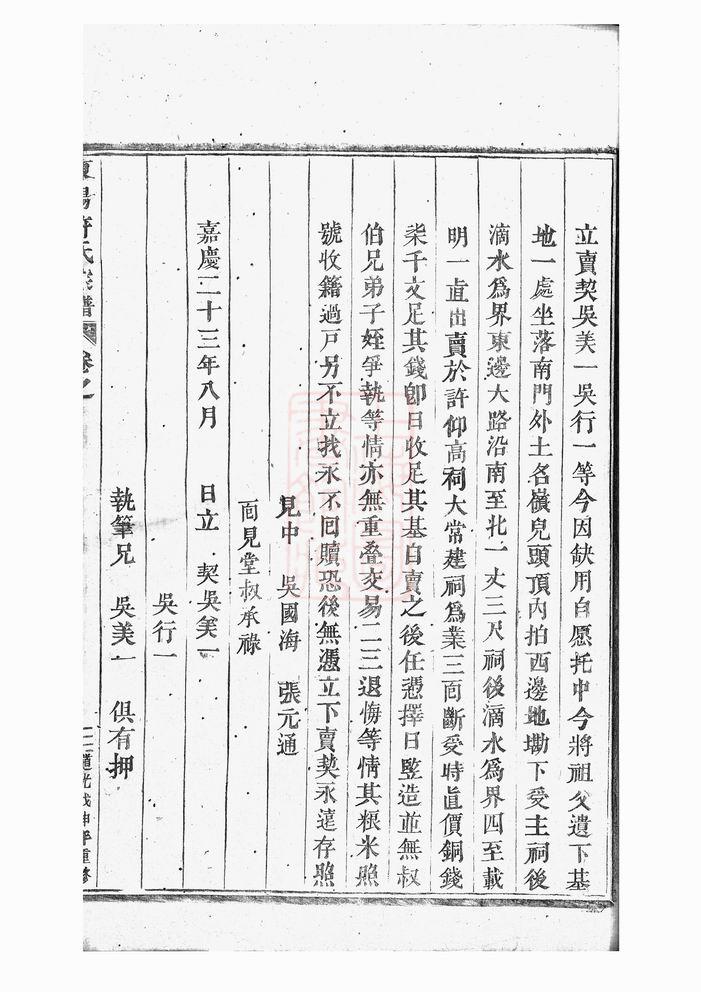 立賣契吳美一吳行一等今因缺用自愿托中今將祖父遺下基
地一處坐落南門外土名嶺兒頭頂內拍西邊地塝下受主祠後
滴水爲界東邊大路沿南至北一丈三尺祠後滴水爲界四至載
明一直出賣於許仰高祠大常建祠爲業三面斷受時直價銅錢
柒千文足其錢卽日收足其基自賣之後任憑擇日豎造並無叔
伯兄弟子姪爭執等情亦無重叠交易二三退悔等情其粮米照
號收籍過戶另不立找永不回贖恐後無憑立下賣契永遠存照
見中 吳國海 張元通
面見堂叔承祿
嘉慶二十三年八月 日立 契吳美一
吳行一
執筆兄 吳美一 俱有押
東陽許氏宗譜 卷之
道光戊申年重修